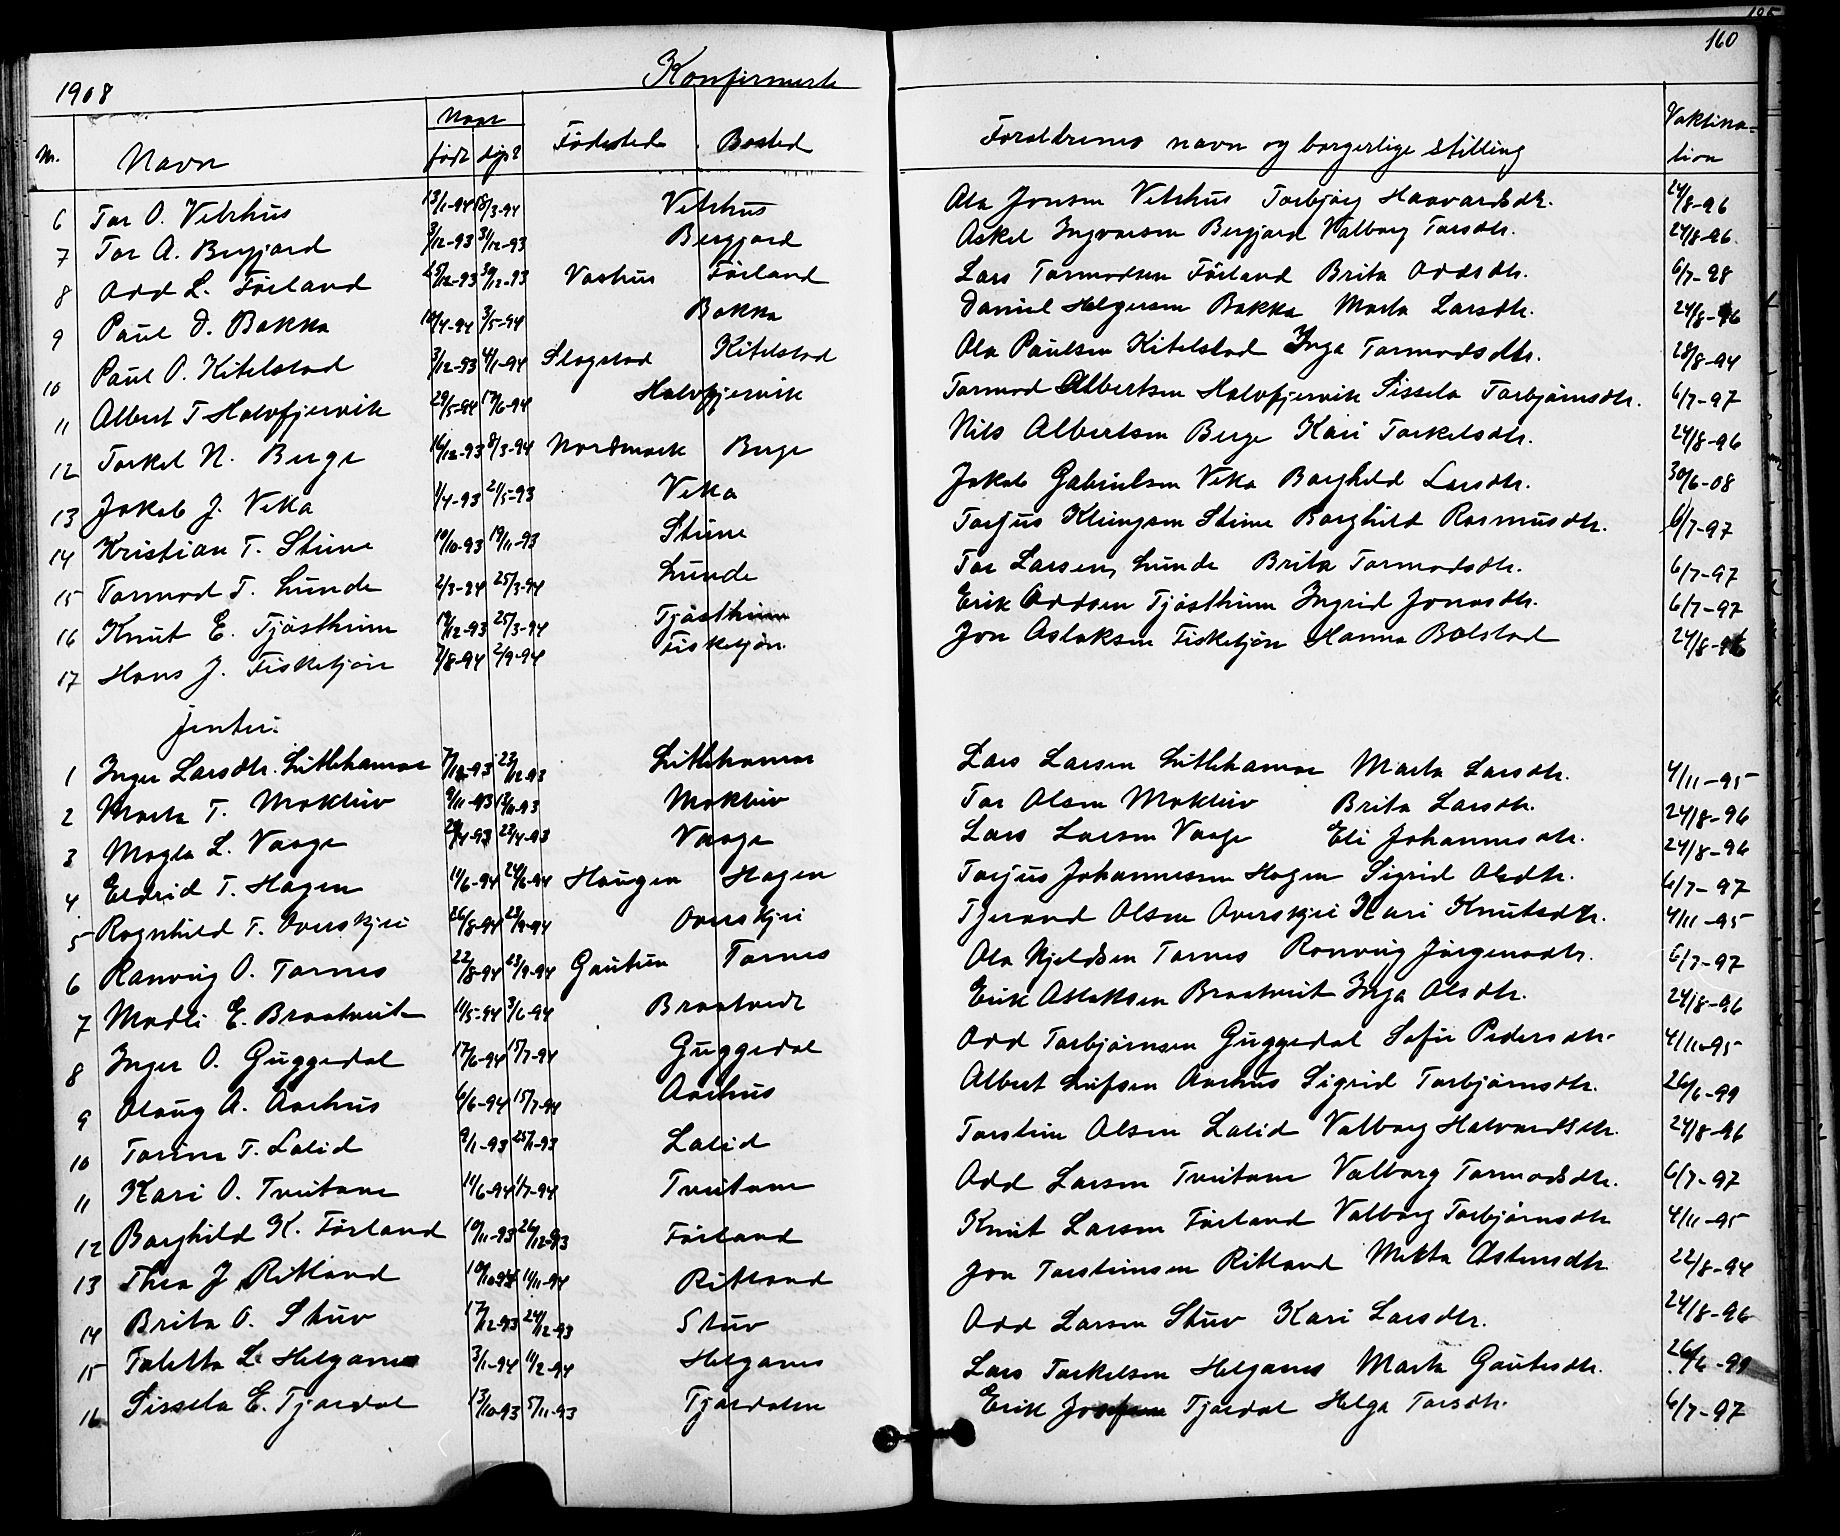 160
1908 Konfirmerte
Nr. Navn Naar født døpt Fødested Bosted Foreldrenes navn og borgerlige stilling Vaktination
6 Tor O. Vetrhus 13/1-94 18/3-94 Vetrhus Ola Jonsen Vetrhus Torbjørg Haavardsdtr. 24/8-96
7 Tor A. Bergjord 3/12-93 31/12-93 Bergjord Askel Ingvarsen Bergjord Valborg Torsdtr. 24/8-96
8 Odd L. Førland 25/12-93 30/12-93 Vashus Førland Lars Tormodsen Førland Brita Oddsdtr. 6/7-98
9 Paul D. Bakka 10/4-94 3/5-94 Bakka Daniel Helgesen Bakka Marta Larsdtr. 24/8-96
10 Paul O. Kitelstad 3/12-93 4/1-94 Slogstad Kitelstad Ola Paulsen Kitelstad Inga Tormodsdtr. 28/8-94
11 Albert T Halvfjervik 29/5-94 17/6-94 Halvfjervik Tormod Albertsen Halvfjervik Sissela Torbjørnsdtr. 6/7-97
12 Torkel N. Berge 16/12-93 8/3-94 Nordmork Berge Nils Albertsen Berge Kari Torkelsdtr. 24/8-96
13 Jakob J. Veka 1/4-93 21/5-93 Veka Jakob Gabrielsen Veka Borghild Larsdtr. 30/6-08
14 Kristian T. Stime 10/10-93 19/11-93 Stime Torjus Klungsen Stime Borghild Rasmusdtr. 6/7-97
15 Tormod T. Lunde 2/3-94 25/3-94 Lunde Tor Larsen Lunde Brita Tormodsdtr. 6/7-97
16 Knut E. Tjøstheim 19/12-93 25/3-94 Tjøstheim Erik Oddsen Tjøstheim Ingrid Jonasdtr. 6/7-97
17 Hans J. Fisketjøn 7/8-94 2/9-94 Fisketjøn. Jon Aslaksen Fisketjøn Hanna Bolstad 24/8-96
jenter.
1 Inger Larsdtr. Litlehamar 7/12-93 23/12-93 Litlehamar Lars Larsen Litlehamar Marta Larsdtr. 4/11-95
2 Marta T. Mokleiv 9/11-93 Mokleiv Tor Olsen Mokleiv Brita Larsdtr. 24/8-96
3 Magla L. Vaage 23/4-93 Vaage Lars Larsen Vaage Eli Johannesdtr. 24/8-96
4 Eldrid T. Hagen 11/6-94 24/6-94 Haugen Hagen Torjus Johannessen Hagen Sigrid Olsdtr. 6/7-97
5 Ragnhild T. Overskjei 26/8-94 23/9-94 Overskjei Tjerand Olsen Overskjei Kari Knutsdtr. 4/11-95
6 Ranveig O. Tornes 22/8-94 23/9-94 Gautun Tornes Ola Kjeldsen Tornes Ronveig Jørgensdtr. 6/7-97
7 Madli E. Braatveit 11/5-94 3/6-94 Braatvedt Erik Aslaksen Braatveit Inga Olsdtr. 24/8-96
8 Inger O. Guggedal 17/6-94 15/7-94 Guggedal Odd Torbjørnsen Guggedal Sofie Pedersdtr. 4/11-95
9 Olaug A. Aarhus 6/6-94 15/7-94 Aarhus Albert Leifsen Aarhus Sigrid Torbjørnsdtr. 26/6-99
10 Torine T. Lalid 9/1-93 Lalid Torstein Olsen Lalid Valborg Halvardsdtr. 24/8-96
11 Kari O. Tveitane 11/6-94 1/7-94 Tveitane Odd Larsen Tveitane Valborg Tormodsdtr. 6/7-97
12 Borghild K. Førland 10/11-93 26/12-93 Førland Knut Larsen Førland Valborg Torbjørnsdtr 4/11-95
13 Thea J Ritland 11/11-94 Ritland Jon Torsteinsen Ritland Metta Østensdtr 22/8-94
14 Brita O. Stuv 17/12-93 24/12-93 Stuv Odd Larsen Stuv Kari Larsdtr. 24/8-96
15 Taletta L. Helganes 3/1-94 11/2-94 Helganes Lars Torkelsen Helganes Marta Gautesdtr. 26/6-99
16 Sissela E. Tjordal 13/10-93 5/11-93 Tjordalen Erik Tjordal Helga Torsdtr. 6/7-97